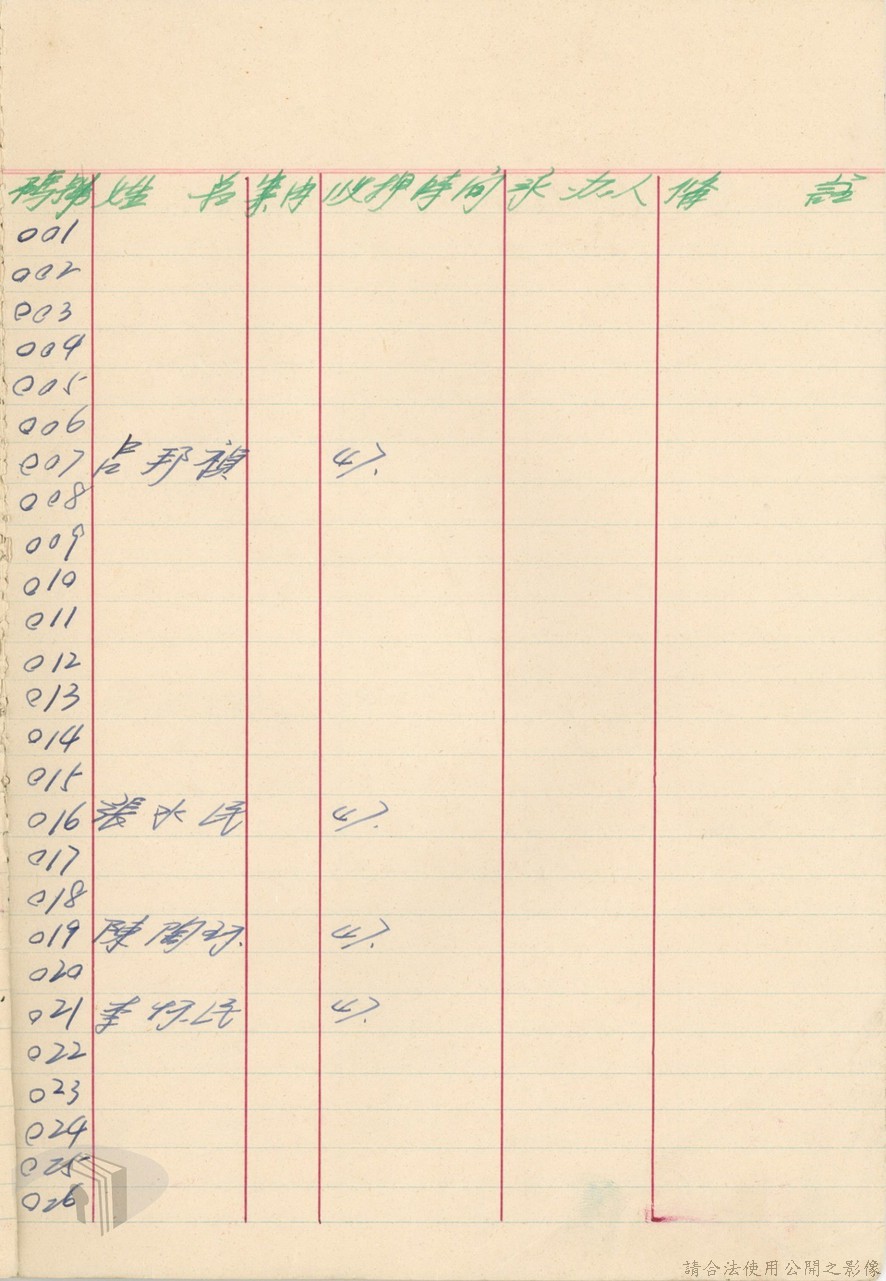 碼號 姓 名 案由 收押時间 承办人 俻 註
001
002
003
004
005
006
007 呂邦禎 47.
008
009
010
011
012
013
014
015
016 張水民 47.
017
018
019 陳 47.
020
021 李 民 47.
022
023
024
025
026
請合法使用公開之影像